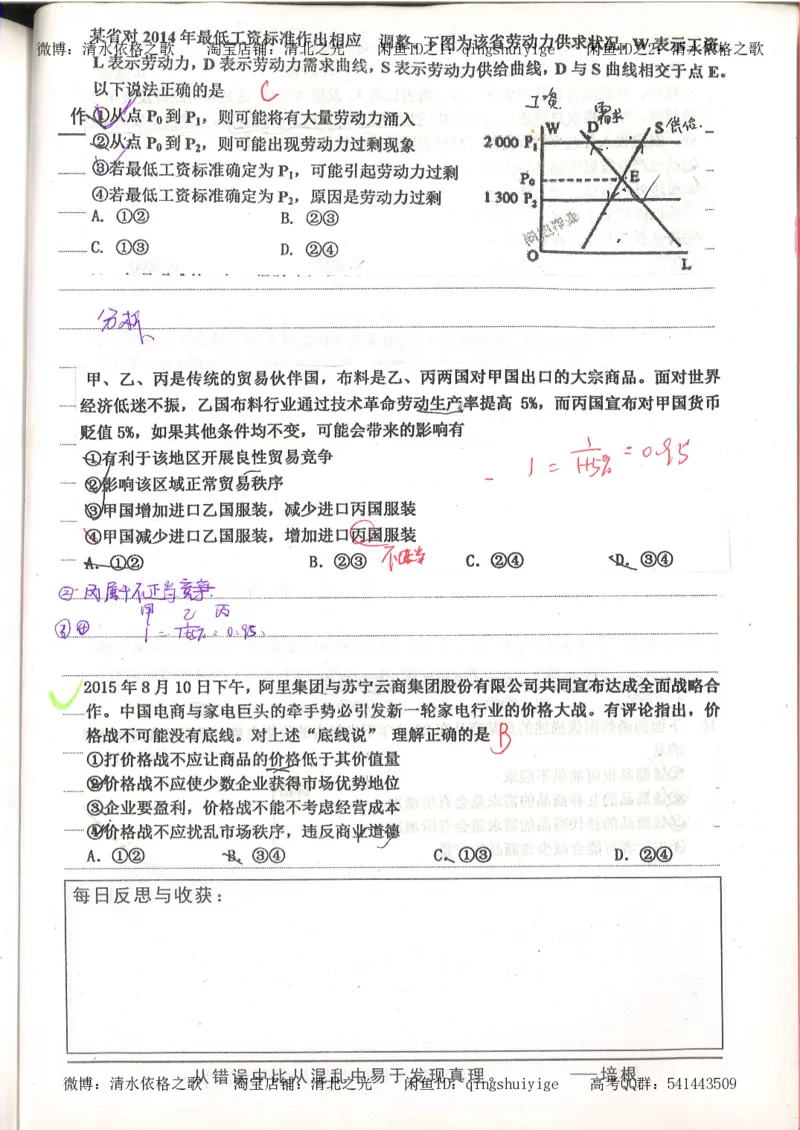 某省对 2014 年最低工资标准作出相应 调整。下图为该省劳动力供求状况，W 表示工资，
微博：清水依格之歌 淘宝店铺：清北之光 闲鱼ID之1：qingshuiyige 闲鱼ID之2：清水依格之歌
L 表示劳动力，D 表示劳动力需求曲线，S 表示劳动力供给曲线，D 与 S 曲线相交于点 E。
以下说法正确的是 C
作 ①从点 P₀ 到 P₁，则可能将有大量劳动力涌入
②从点 P₀ 到 P₂，则可能出现劳动力过剩现象
③若最低工资标准确定为 P₁，可能引起劳动力过剩
④若最低工资标准确定为 P₂，原因是劳动力过剩
A. ①② B. ②③
C. ①③ D. ②④
工资 需求
W D S 供给
2 000 P₁
P₀ E
1 300 P₂
O L
分析
甲、乙、丙是传统的贸易伙伴国，布料是乙、丙两国对甲国出口的大宗商品。面对世界
经济低迷不振，乙国布料行业通过技术革命劳动生产率提高 5%，而丙国宣布对甲国货币
贬值 5%，如果其他条件均不变，可能会带来的影响有
①有利于该地区开展良性贸易竞争
②影响该区域正常贸易秩序
③甲国增加进口乙国服装，减少进口丙国服装
④甲国减少进口乙国服装，增加进口丙国服装
1 = 1/1+5% = 0.95
A. ①② B. ②③ C. ②④ D. ③④
②丙属于不正当竞争
甲 乙 丙
③④ 1 = 1/1+5% = 0.95
2015 年 8 月 10 日下午，阿里集团与苏宁云商集团股份有限公司共同宣布达成全面战略合
作。中国电商与家电巨头的牵手势必引发新一轮家电行业的价格大战。有评论指出，价
格战不可能没有底线。对上述“底线说” 理解正确的是 B
①打价格战不应让商品的价格低于其价值量
②价格战不应使少数企业获得市场优势地位
③企业要盈利，价格战不能不考虑经营成本
④价格战不应扰乱市场秩序，违反商业道德
A. ①② B. ③④ C. ①③ D. ②④
每日反思与收获：
从错误中比从混乱中易于发现真理。 ——培根
微博：清水依格之歌 淘宝店铺：清北之光 闲鱼ID：qingshuiyige 高考QQ群：541443509